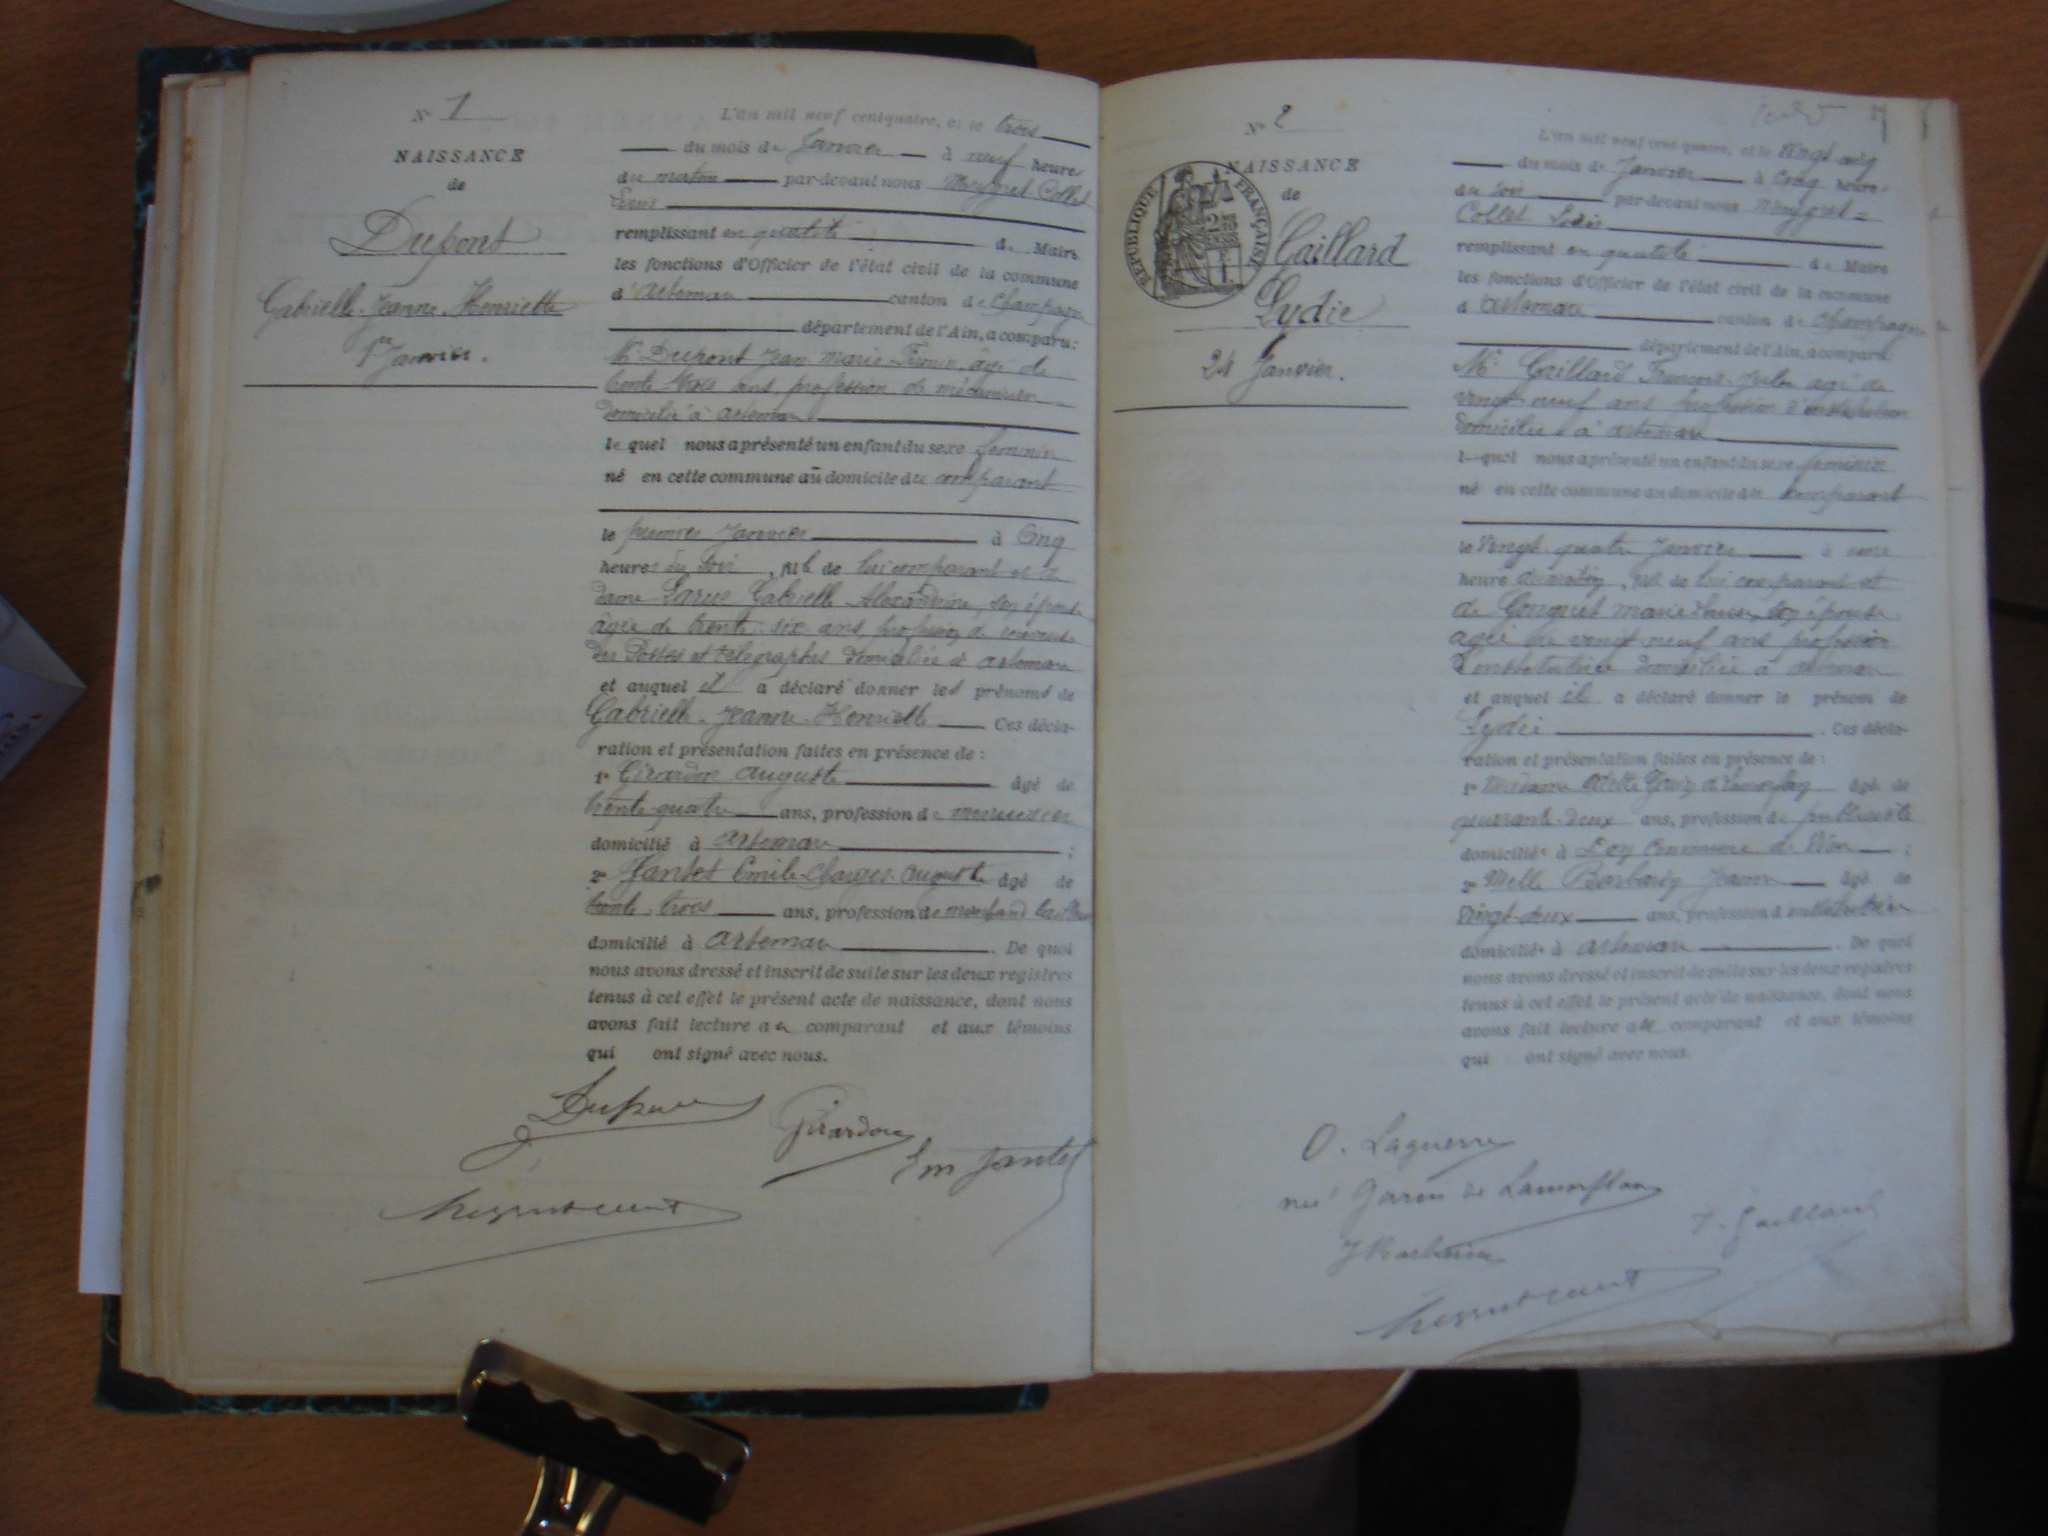 N° 1
NAISSANCE
de
Dupont
Gabrielle-Jeanne-Henriette
1er Janvier.
L'an mil neuf cent quatre, et le trois
du mois de Janvier à neuf heures
du matin par-devant nous Meygret-Collet
remplissant en qualité de Maire
les fonctions d'Officier de l'état civil de la commune
d'Artemare canton de Champagne
département de l'Ain, a comparu:
Mr Dupont Jean-Marie-Firmin, âgé de
trente trois ans, profession de mécanicien
domicilié à Artemare
lequel nous a présenté un enfant du sexe féminin
né en cette commune au domicile du comparant
le premier Janvier à cinq
heures du soir, né de lui comparant et de
dame Gabrielle Alexandrine, son épouse
âgée de trente-six ans, profession de receveuse
des Postes et télégraphes domiciliée à Artemare
et auquel il a déclaré donner les prénoms de
Gabrielle-Jeanne-Henriette Ces décla-
ration et présentation faites en présence de:
1° Girardon Auguste âgé de
trente-quatre ans, profession de menuisier
domicilié à Artemare ;
2° Jantet Emile-Charles-Auguste âgé de
trente-trois ans, profession de marchand tailleur
domicilié à Artemare. De quoi
nous avons dressé et inscrit de suite sur les deux registres
tenus à cet effet le présent acte de naissance, dont nous
avons fait lecture au comparant et aux témoins
qui ont signé avec nous.
Dupont
Girardon
Em Jantet
N° 2
NAISSANCE
de
RÉPUBLIQUE FRANÇAISE
Gaillard
Lydie
24 Janvier.
L'an mil neuf cent quatre, et le vingt-cinq
du mois de Janvier à cinq heures
du soir par-devant nous Meygret-
Collet
remplissant en qualité de Maire
les fonctions d'Officier de l'état civil de la commune
d'Artemare canton de Champagne
département de l'Ain, a comparu:
Mr Gaillard François-Jules âgé de
vingt-neuf ans profession d'instituteur
domicilié à Artemare
lequel nous a présenté un enfant du sexe féminin
né en cette commune au domicile du comparant
le vingt-quatre Janvier à onze
heures du matin, né de lui comparant et
de Conquet Marie-Louise, son épouse
âgée de vingt-neuf ans profession
d'institutrice domiciliée à Artemare
et auquel il a déclaré donner le prénom de
Lydie. Ces décla-
ration et présentation faites en présence de:
1° Madame âgé de
quarante-deux ans, profession de publiciste
domiciliée à commune de ;
2° Melle Barbarin Jeanne âgé de
vingt-deux ans, profession d'institutrice
domiciliée à Artemare. De quoi
nous avons dressé et inscrit de suite sur les deux registres
tenus à cet effet le présent acte de naissance, dont nous
avons fait lecture au comparant et aux témoins
qui ont signé avec nous.
O. Laguerre
née de
J Barbarin
F. Gaillard